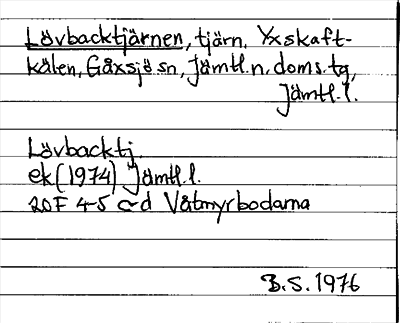 Lövbacktjärnen, tjärn, Yxskaft-
kälen, Gåxsjö sn, Jämtl.n.doms.tg,
Jämtl.l.
Lövbacktj.
ek (1974) Jämtl.l.
20F 4-5 c-d Våtmyrbodarna
B.S. 1976